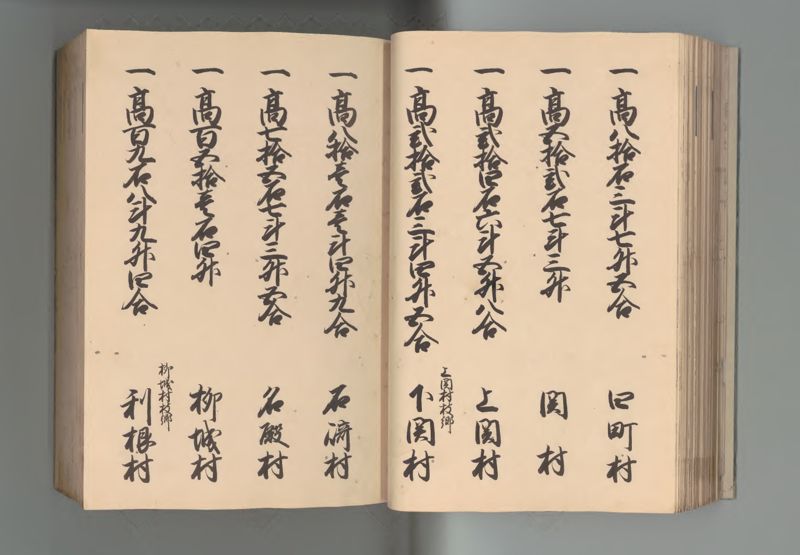 一 高八拾石三斗七升五合 口町村
一 高五拾弐石七斗三升 関村
一 高弐拾四石六斗五升八合 上関村
上関村枝郷
一 高弐拾弐石三斗四升五合 下関村
一 高八拾壱石壱斗四升九合 石済村
一 高七拾五石七斗三升五合 名殿村
一 高百五拾壱石四升 柳城村
柳城村枝郷
一 高百九石八斗九升四合 利根村